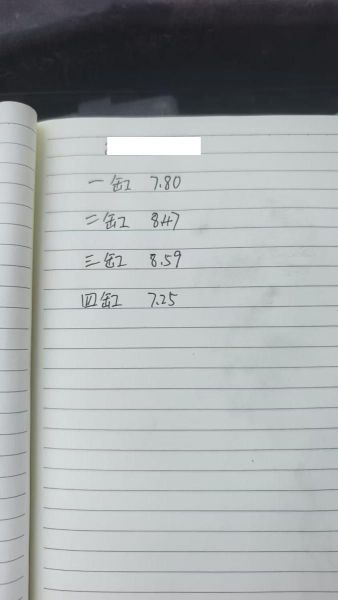 一缸 7.80
二缸 8.47
三缸 8.59
四缸 7.25